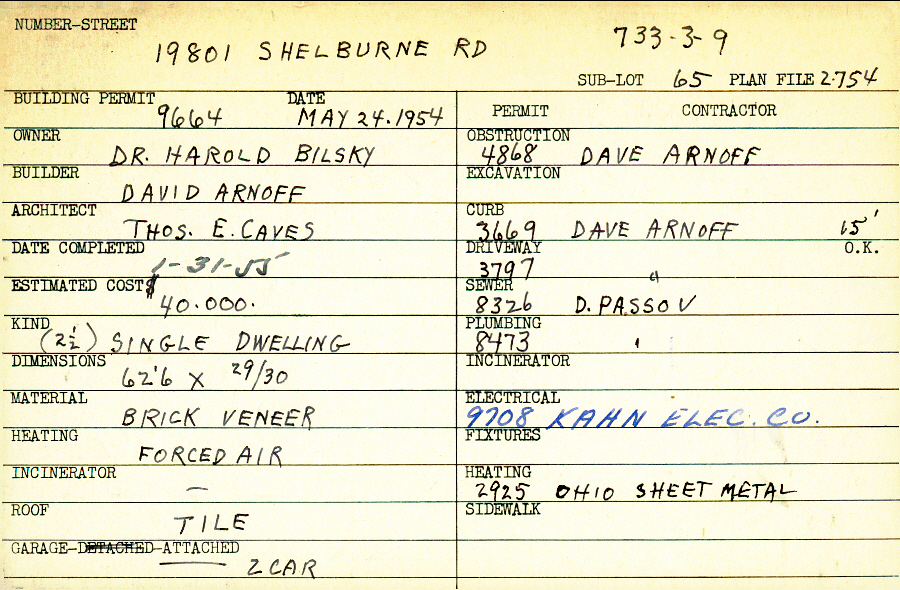 NUMBER-STREET
19801 SHELBURNE RD 733-3-9
SUB-LOT 65 PLAN FILE 2754
BUILDING PERMIT 9664 DATE MAY 24.1954
OWNER DR. HAROLD BILSKY
BUILDER DAVID ARNOFF
ARCHITECT THOS. E. CAVES
DATE COMPLETED 1-31-55
ESTIMATED COST $ 40.000.
KIND (2½) SINGLE DWELLING
DIMENSIONS 62'6 X 29/30
MATERIAL BRICK VENEER
HEATING FORCED AIR
INCINERATOR —
ROOF TILE
GARAGE-DETACHED-ATTACHED 2 CAR
PERMIT CONTRACTOR
OBSTRUCTION 4868 DAVE ARNOFF
EXCAVATION
CURB 3669 DAVE ARNOFF 15'
DRIVEWAY 3797 " O.K.
SEWER 8326 D. PASSOV
PLUMBING 8473 '
INCINERATOR
ELECTRICAL 9708 KAHN ELEC. CO.
FIXTURES
HEATING 2925 OHIO SHEET METAL
SIDEWALK